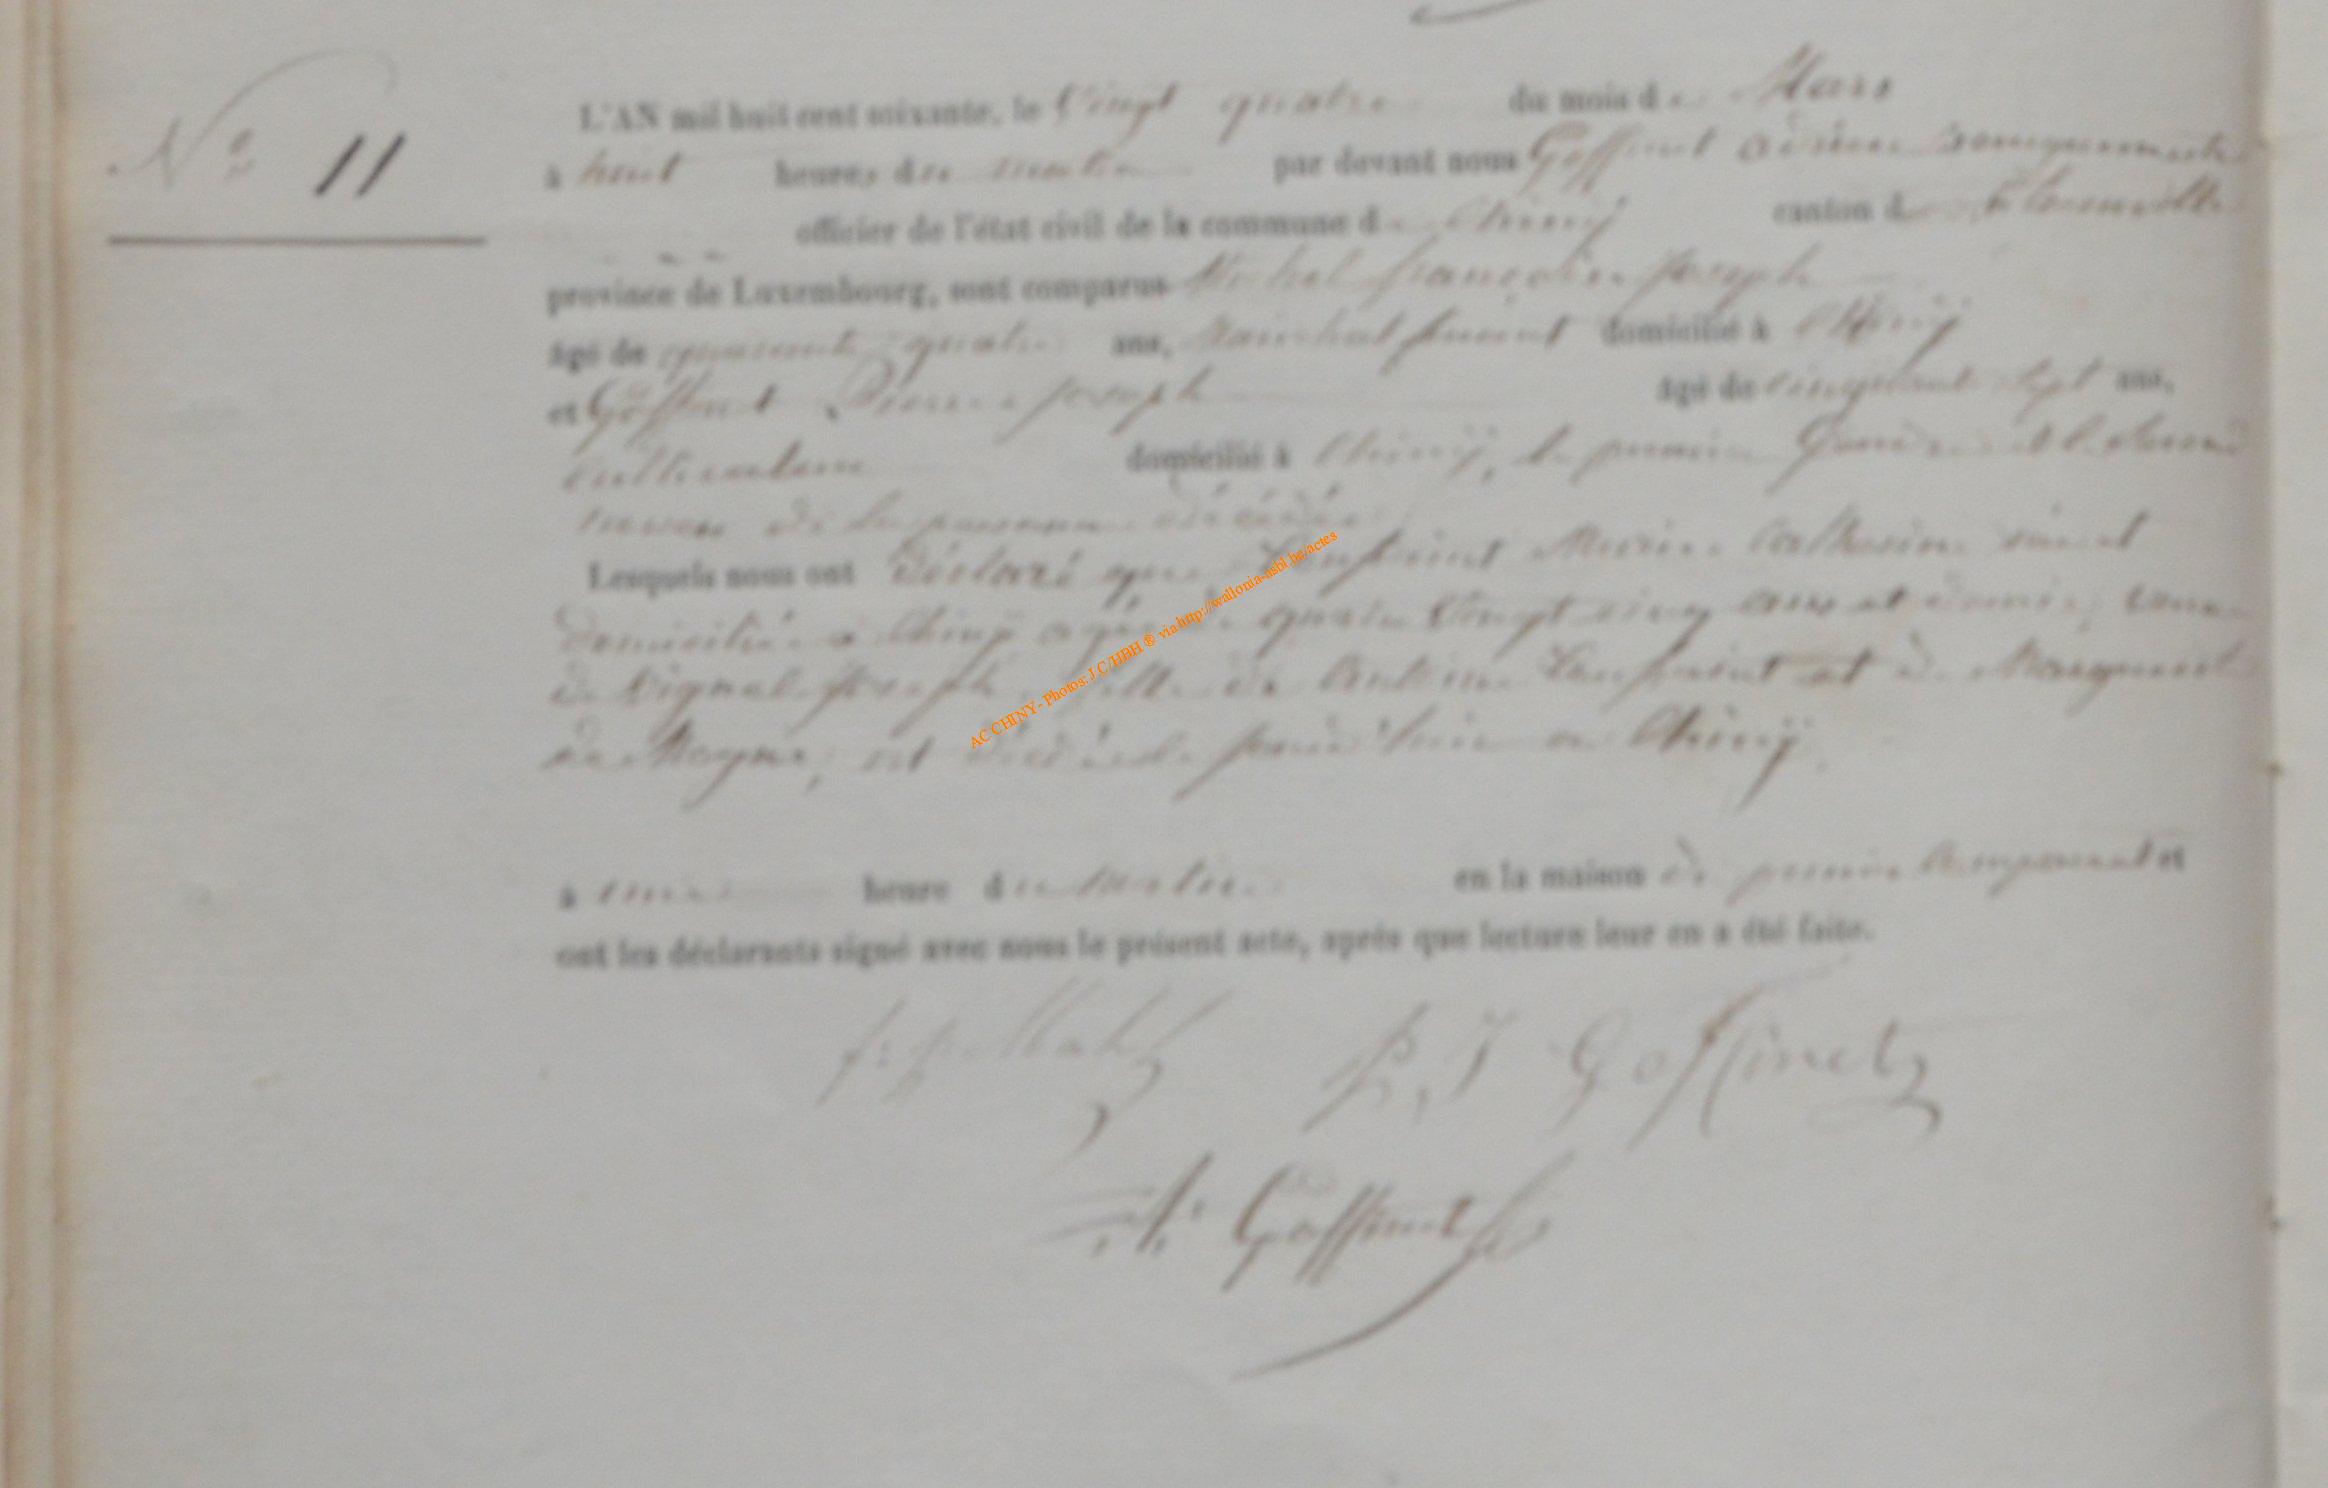 N° 11
L'AN mil huit cent soixante, le Vingt quatre du mois de Mars
à huit heures du matin par devant nous Goffinet
officier de l'état civil de la commune de Chiny canton de Florenville
province de Luxembourg, sont comparus françois Joseph
âgé de quarante quatre ans, Maréchal ferrant domicilié à Chiny
et Goffinet Pierre Joseph âgé de cinquante sept ans,
cultivateur domicilié à Chiny, le premier Gendre et le second
neveu de la personne décédée
Lesquels nous ont déclaré que Marie Catherine
domiciliée à Chiny agée de quatre Vingt cinq ans et demi, veuve
de Joseph, fille de Antoine et de Marguerite
est décédée à Chiny
à une heure du matin en la maison du premier comparant et
ont les déclarants signé avec nous le présent acte, après que lecture leur en a été faite.
P. J Goffinet
A. Goffinet
AC CHINY- Photos: J C/HBH ® via http://wallonia-asbl.be/actes